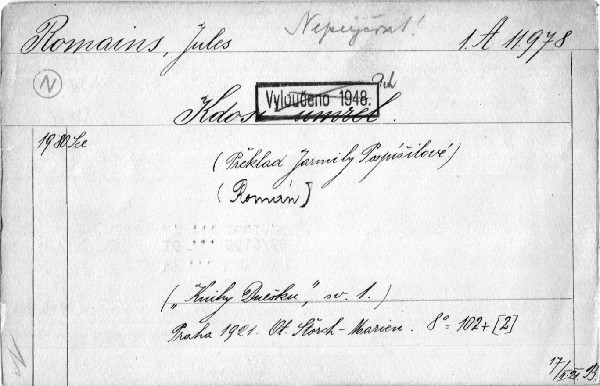 Romains, Jules
Nepůjčovat!
1 A 11.978
N
Vyloučeno 1948.
Kdosi umřel.
(Překlad Jarmily Pospíšilové)
(Román]
("Knihy Dneška", sv. 1.)
Praha 1921. Ot. Štorch-Marien. 8° 102+[2]